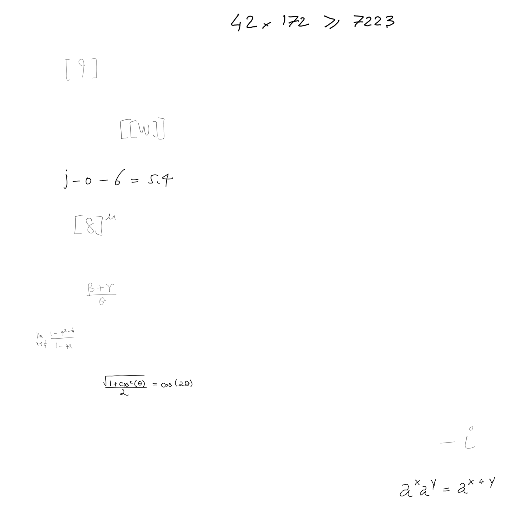 42 × 172 ⩾ 7223
[9]
[[W]]
j - 0 - 6 = 5.4
[8]^μ
(β + γ)/θ
√(1+cos²(θ))/2 = cos(2θ)
- i
a^x a^y = a^{x+y}